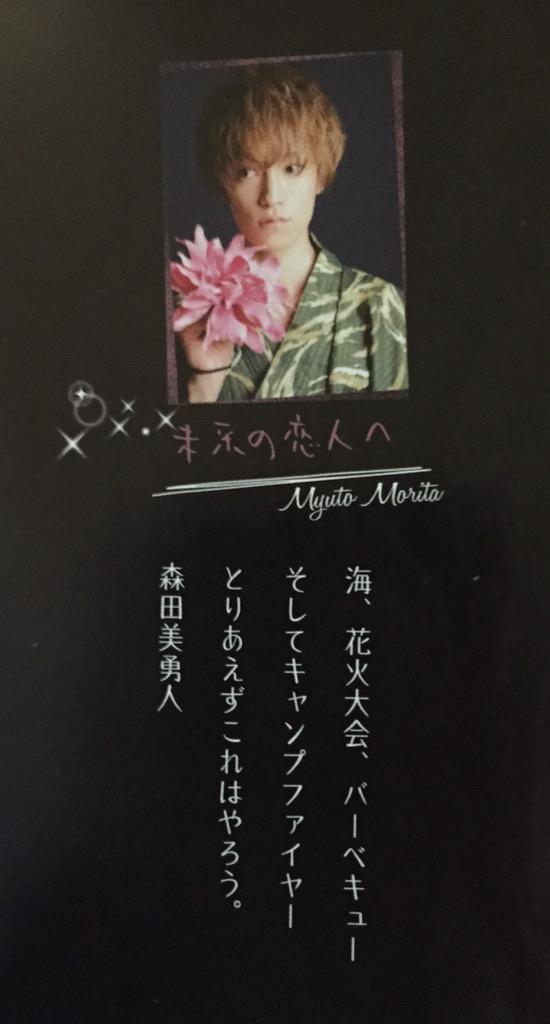 未来の恋人へ
Myuto Morita
海、花火大会、バーベキュー
そしてキャンプファイヤー
とりあえずこれはやろう。
森田美勇人